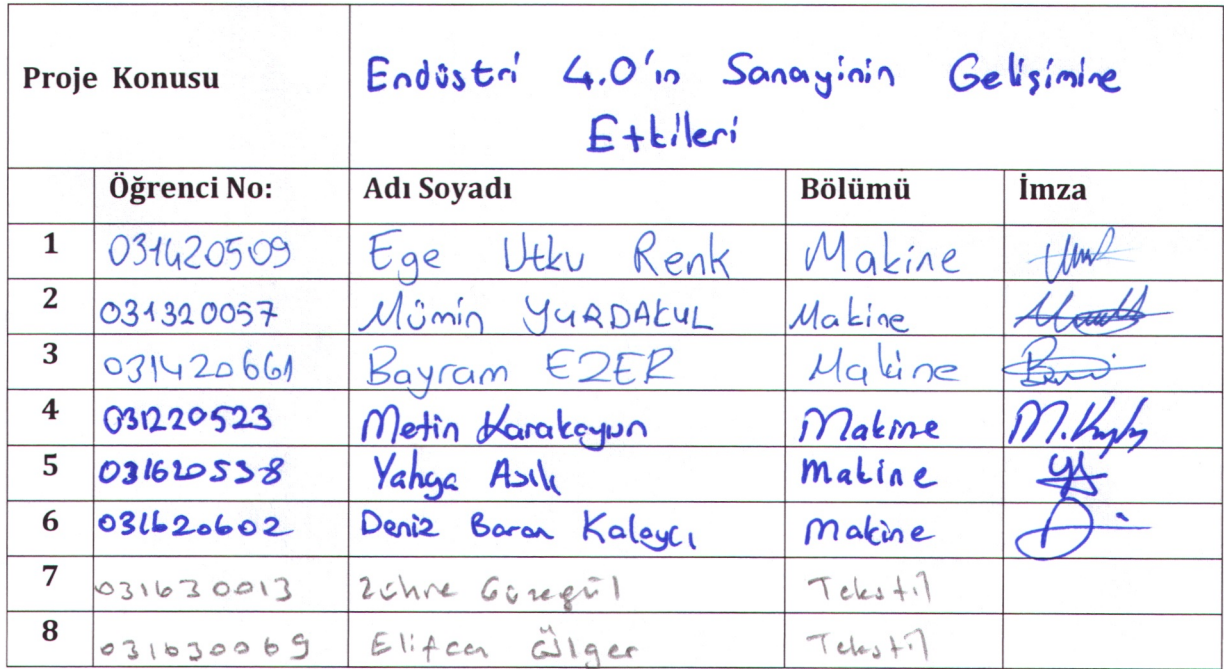 Proje Konusu Endüstri 4.0'ın Sanayinin Gelişimine
Etkileri
Öğrenci No: Adı Soyadı Bölümü İmza
1 031420509 Ege Utku Renk Makine
2 031320057 Mümin YURDAKUL Makine
3 031420661 Bayram EZER Makine
4 031220523 Metin Karakoyun Makine
5 031620538 Yahya Asıllı Makine
6 031620602 Deniz Baran Kalaycı Makine
7 031630013 Zühre Güzegül Tekstil
8 031630069 Elifcan Ülger Tekstil